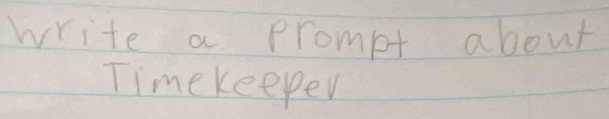 write a prompt about
Timekeeper